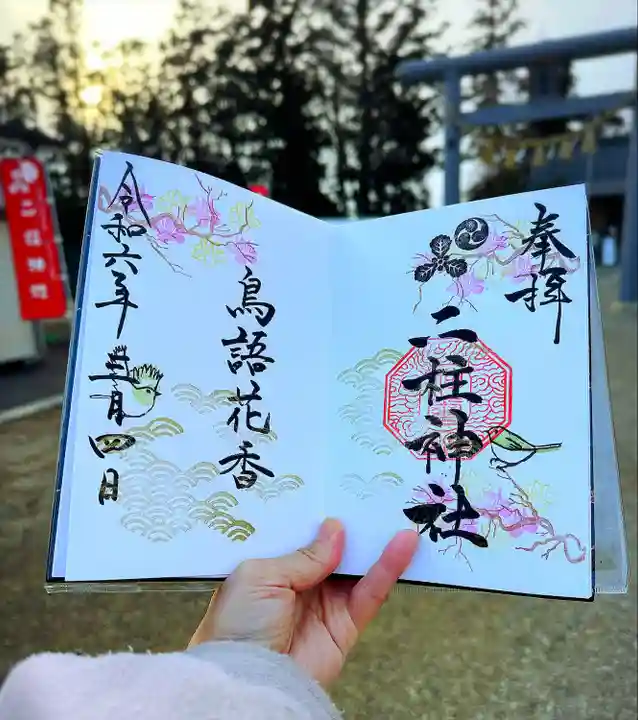 奉拝
二柱神社
鳥語花香
令和六年
三月四日
二柱神社